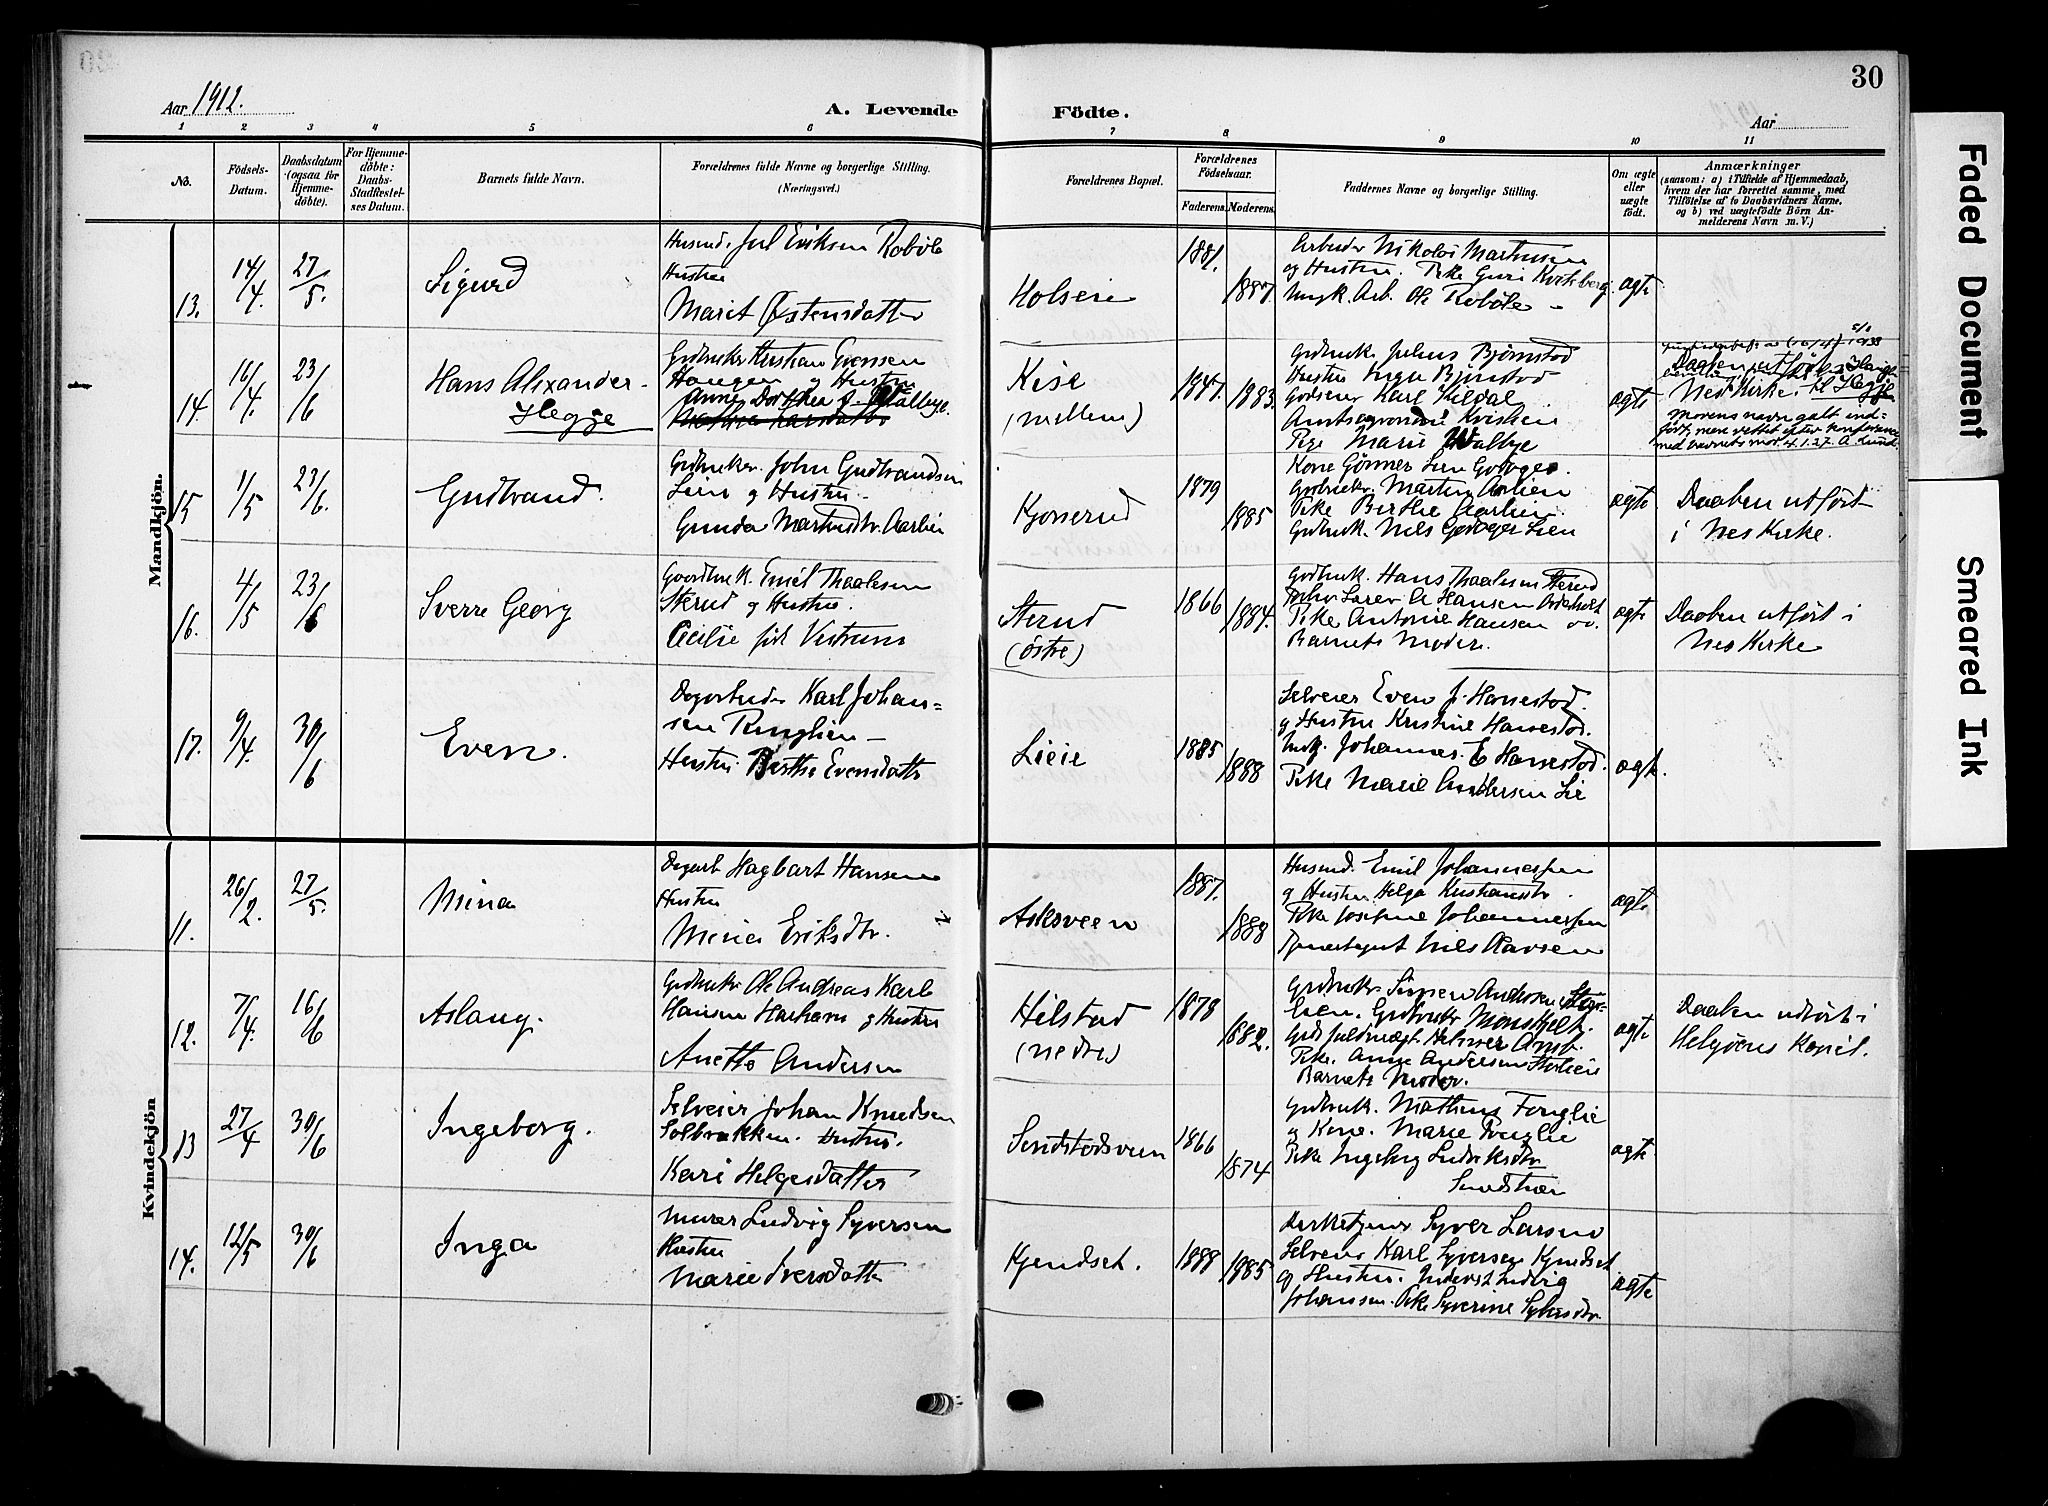 30
Aar 1912.
A. Levende Födte.
Aar
1 2 3 4 5 6 7 8 9 10 11
No.
Födsels-
Datum.
Daabsdatum
(ogsaa for
Hjemme-
döbte).
For Hjemme-
döbte:
Daabs-
Stadfæstel-
ses Datum.
Barnets fulde Navn.
Forældrenes fulde Navne og borgerlige Stilling.
(Næringsvei.)
Forældrenes Bopæl.
Forældrenes
Födselsaar.
Faderens. Moderens.
Faddernes Navne og borgerlige Stilling.
Om ægte
eller
uægte
födt.
Anmærkninger
(saasom: a) i Tilfælde af Hjemmedaab,
hvem der har forrettet samme, med
Tilföielse af to Daabsvidners Navne,
og b) ved uægtefödte Börn An-
melderens Navn m. V.)
Mandkjön.
13.
14/4.
27/5.
Sigurd
Juel Eriksen Robøle
Hustru
Marit Østensdatter
Holseie
1881.
1887.
Arbeider Nikolai Martinsen
og Hustru. Pike Guri Kvitsberg.
Ungk. Arb. Ole Robøle
ægte
14.
16/4.
23/6
Hans Alexander
Hegge
Grdbruker Kristian Evensen
Haugen og Hustru
Anne Dorthea f. Valbye.
Kise
(mellem)
1883.
Grdbruk. Julius Bjørnstad
Hustru Inga Bjørnstad
Godseier Karl Kildal
Amtsagronom Kristian
Pige Marie Walbye
ægte
Daaben utført
Nes Kirke.
Morens navn galt ind-
ført, men rettet efter konferance
med barnets mor 4.1.27. A. Lund
15
1/5
23/6.
Gudbrand.
Grdbruker. John Gudbrandsen
Lien og Hustru
Gunda Martinsdtr. Aarlien
Kjonerud
1879
1885
Kone Gønner Lien
Grdbruker. Martin Aarlien
Pike Berthe Aarlien
Grdbruk. Nils Lien
ægte
Daaben utført
i Nes Kirke.
16.
4/5
23/6
Sverre Georg
Gaardbruk. Emil Thoalesen
Sterud og Hustru.
Cecilie født Vestrum
Sterud
(østre)
1866
1884.
Grdbruk. Hans Thoalesen Sterud
Pike Antonie Hansen
Barnets Moder.
ægte
Daaben utført i
Nes Kirke
17.
9/4.
30/6
Even.
Dagarbeider Karl Johan-
sen Ringlien
Hustru Berthe Evensdatter
Lieie
1885
1888
Selveier Even J. Hanestad.
og Hustru Kristine Hanestad.
Ungk. Johannes E Hanestad.
Pike Marie Andersen Lie
ægte.
Kvindekjön
11.
26/2.
27/5.
Mina
Dagarb Hagbart Hansen
Hustru
Mina Eriksdtr.
Aslesveen
1887.
1888
Husmd. Emil Johannessen
og Hustru Helga Kristiansdtr.
Pike Josefine Johannessen
Tjenestegut Nils Olavsen
ægte
12.
7/4.
16/6
Aslaug.
Grdbruker Ole Andreas Karl
Hansen og Hustru
Anette Andersen
Hilstad
(nedre)
1878
1882.
Grdbruker Simen Andersen
Pike. Anne Andersen
Barnets Moder.
ægte
Daaben udført i
Helgøens Kapel.
13
27/4
30/6
Ingeborg.
Selveier Johan Knudsen
Solbrækken. Hustru.
Kari Helgesdatter
Sundstadsveen
1866
1874
Grdbruk. Mathias Fonglie
og Kone. Marie Fonglie
Pike Ingeborg Ludviksdtr
ægte
14.
12/5
30/6
Inga
Murer Ludvig Syversen
Hustru
Marie Iversdatter
Kjendset.
1888
1885
Kirketjener Syver Larsen
Selveier Karl Syversen Kjendset
og Hustru. Ludvig
Johansen. Pike Syverine Syversdtr.
ægte
Faded Document
Smeared Ink